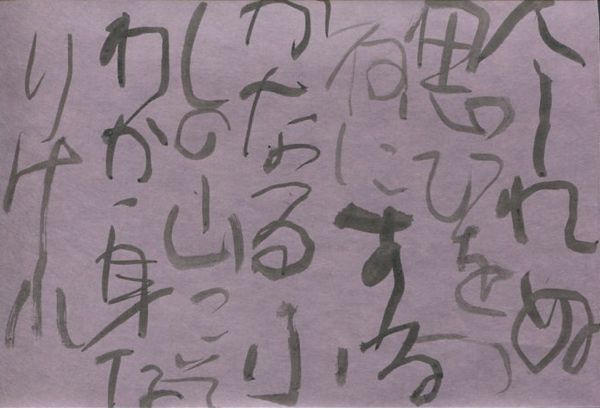 人しれぬ
思ひをつ
ねにする
かなるふ
しの山こそ
わか身な
りけれ